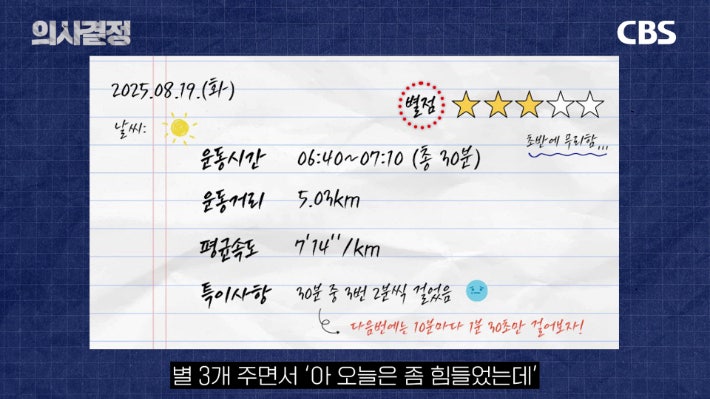 의사결정
CBS
2025.08.19.(화)
별점
날씨:
초반에 무리함,,,
운동시간 06:40~07:10 (총 30분)
운동거리 5.03km
평균속도 7'14''/km
특이사항 30분 중 3번 2분씩 걸었음
다음번에는 10분마다 1분 30초만 걸어보자!
별 3개 주면서 '아 오늘은 좀 힘들었는데'